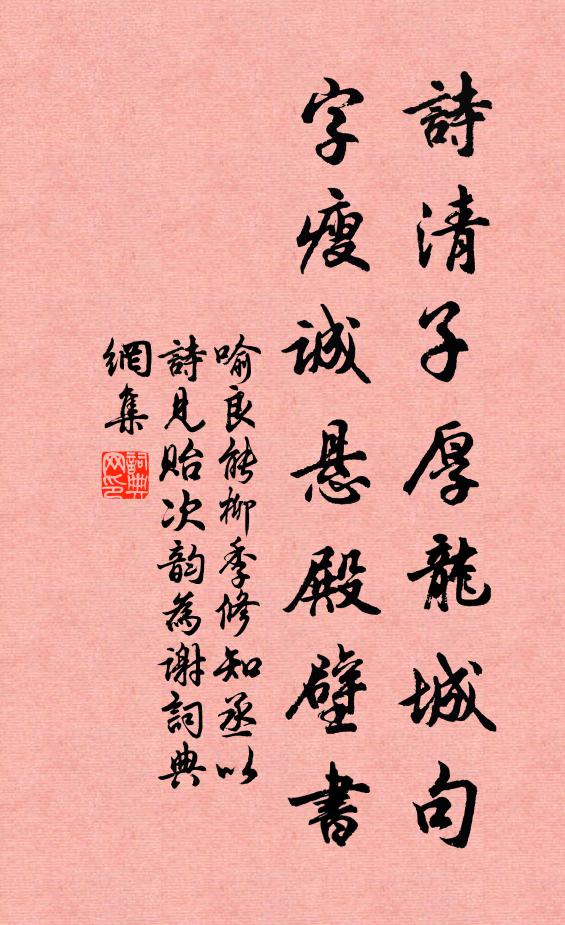 詩清子厚龍城句
字瘦誠悬殿壁書
喻良能柳季修知丞以
詩見貽次韵為谢詞典
網集
詞典
网印